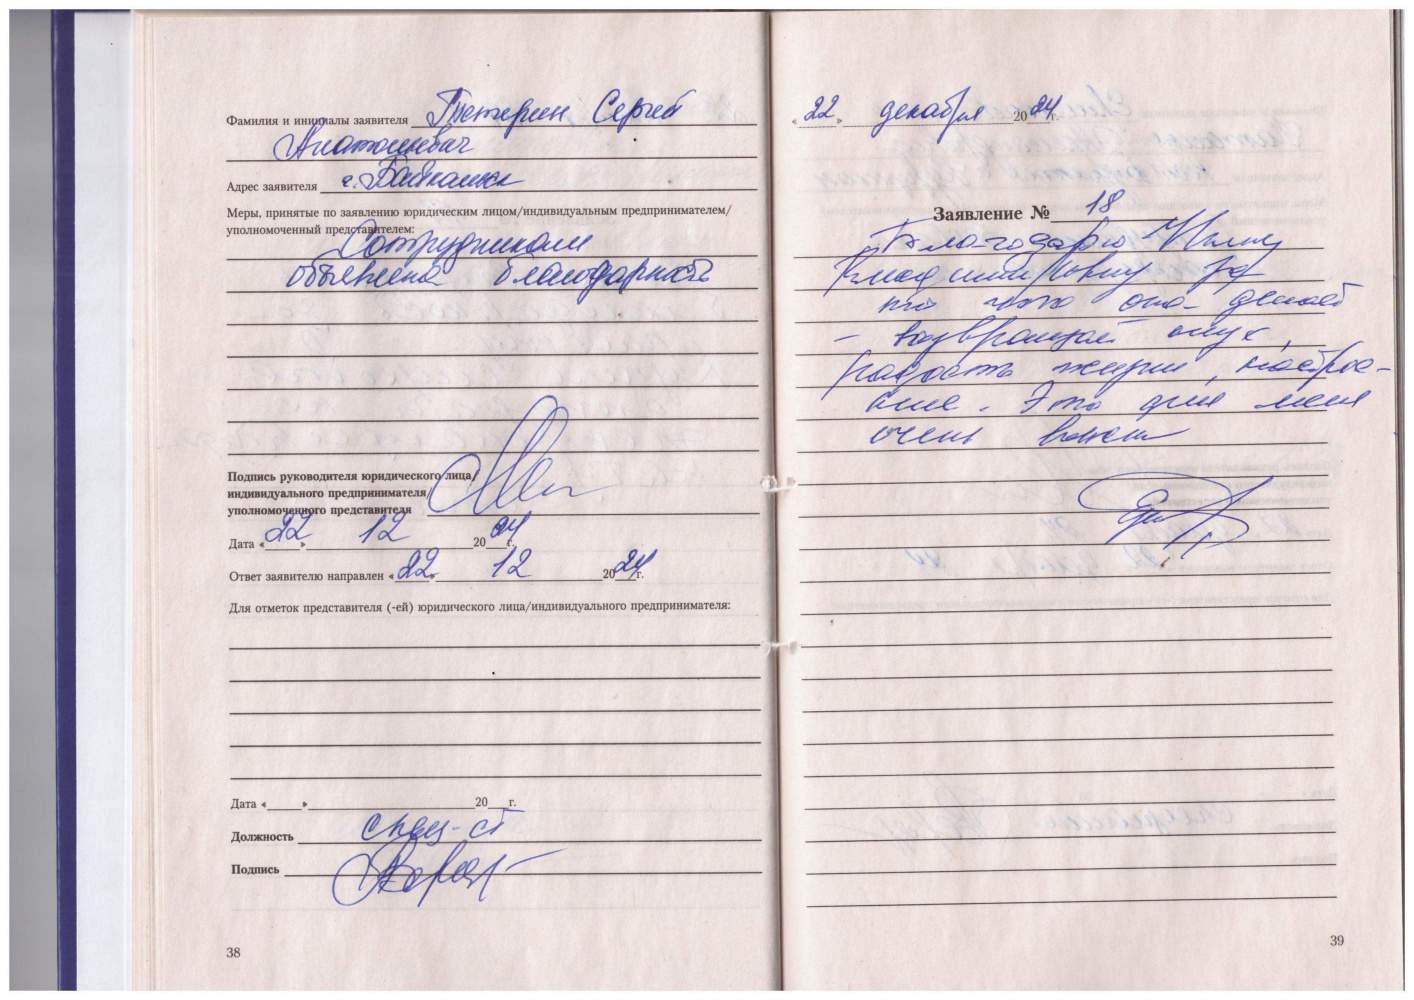 Фамилия и инициалы заявителя Тетерин Сергей
Анатольевич
Адрес заявителя г.
Меры, принятые по заявлению юридическим лицом/индивидуальным предпринимателем/
уполномоченный представителем:
Сотрудникам
объявлена благодарность
Подпись руководителя юридического лица/
индивидуального предпринимателя/
уполномоченного представителя
Дата «22» 12 2024г.
Ответ заявителю направлен «22» 12 2024г.
Для отметок представителя (-ей) юридического лица/индивидуального предпринимателя:
Дата «____»____20__г.
Должность спец-ст
Подпись
38
«22» декабря 2024г.
Заявление № 18
Благодарю
Владимировну за
то что она делает
- возвращает слух,
радость жизни, настрое-
ние. Это для меня
очень важно
39